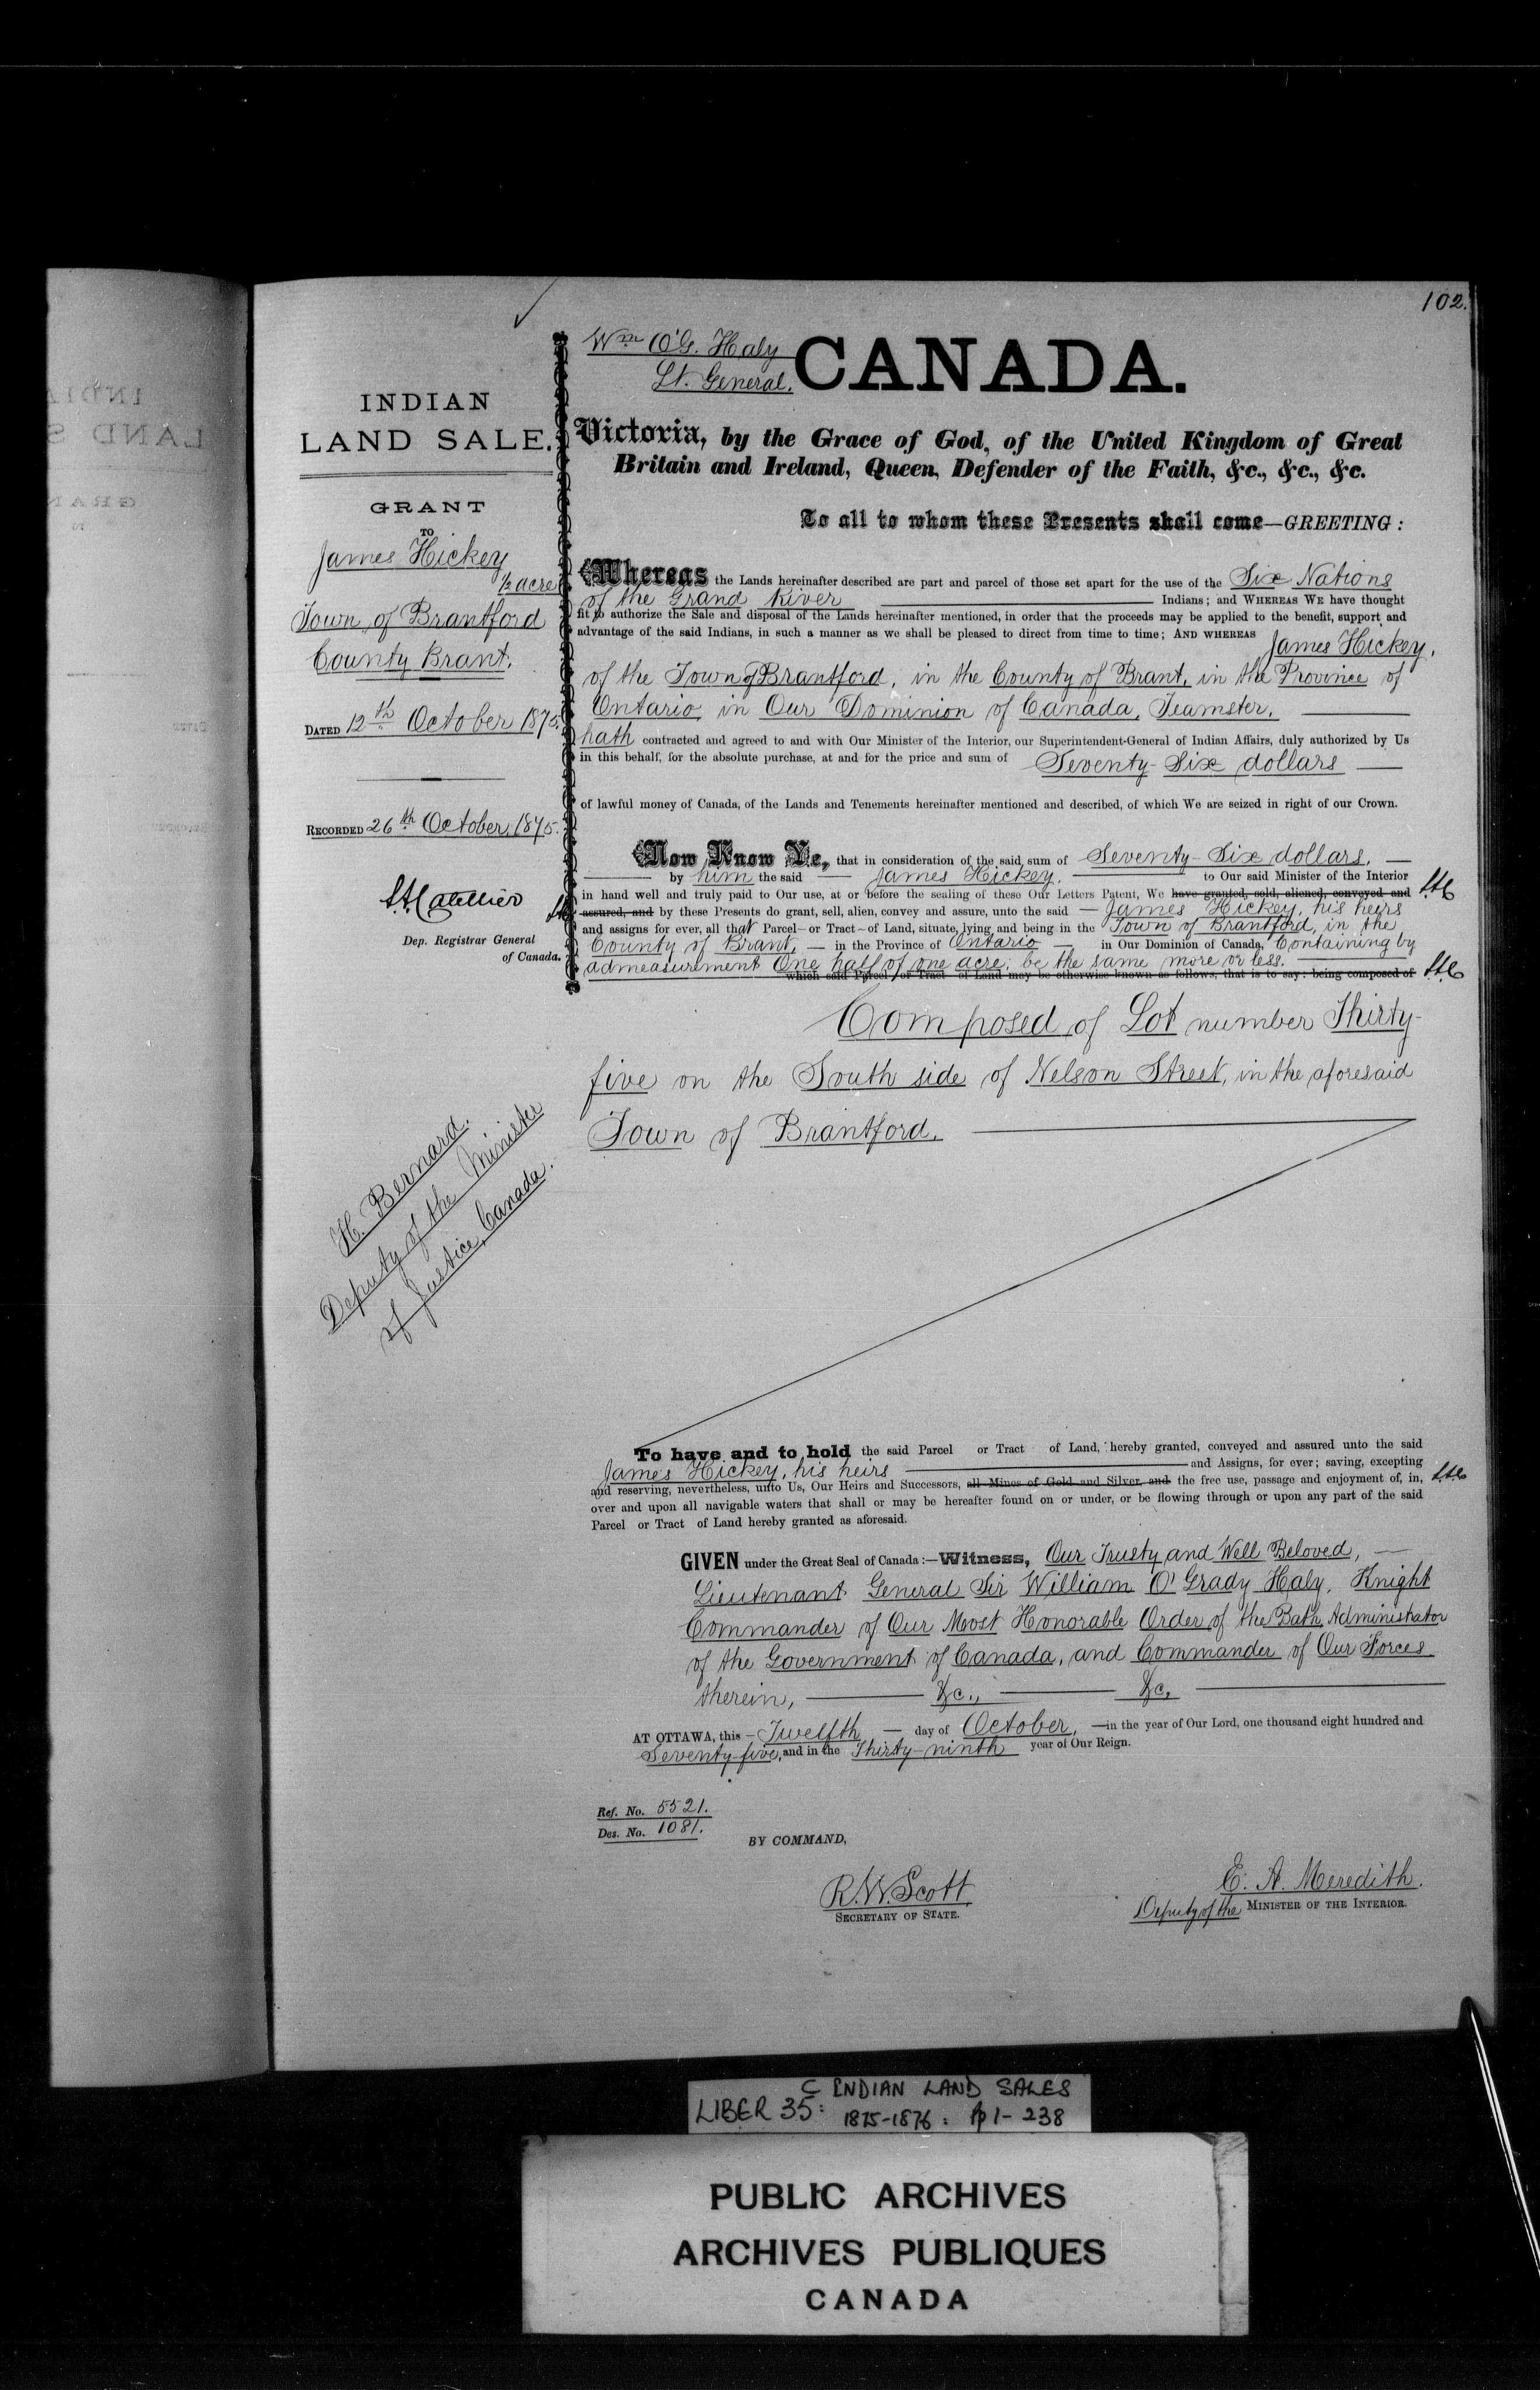 102.
Wm O'G. Haly
Lt. General.
CANADA.
INDIAN
LAND SALE.
GRANT
TO
James Hickey
1/2 acre
Town of Brantford
County Brant.
DATED 12th October 1875.
RECORDED 26th October, 1875.
Dep. Registrar General
of Canada.
H. Bernard.
Deputy of the Minister
of Justice, Canada.
Victoria, by the Grace of God, of the United Kingdom of Great
Britain and Ireland, Queen, Defender of the Faith, &c., &c., &c.
To all to whom these Presents shall come—GREETING:
Whereas the Lands hereinafter described are part and parcel of those set apart for the use of the Six Nations
of the Grand River Indians; and WHEREAS WE have thought
fit to authorize the Sale and disposal of the Lands hereinafter mentioned, in order that the proceeds may be applied to the benefit, support and
advantage of the said Indians, in such a manner as we shall be pleased to direct from time to time; AND WHEREAS James Hickey,
of the Town of Brantford, in the County of Brant, in the Province of
Ontario, in Our Dominion of Canada, Teamster,
hath contracted and agreed to and with Our Minister of the Interior, our Superintendent-General of Indian Affairs, duly authorized by Us
in this behalf, for the absolute purchase, at and for the price and sum of Seventy-Six dollars
of lawful money of Canada, of the Lands and Tenements hereinafter mentioned and described, of which We are seized in right of our Crown.
Now Know Ye, that in consideration of the said sum of Seventy-Six dollars,
by him the said James Hickey, to Our said Minister of the Interior
in hand well and truly paid to Our use, at or before the sealing of these Our Letters Patent, We have granted, sold, aliened, conveyed and
assured, and by these Presents do grant, sell, alien, convey and assure, unto the said — James Hickey, his heirs
and assigns for ever, all that Parcel or Tract of Land, situate, lying and being in the Town of Brantford, in the
County of Brant, — in the Province of Ontario — in Our Dominion of Canada, Containing by
admeasurement One half of one acre; be the same more or less.
which said Parcel or Tract of Land may be otherwise known as follows, that is to say: being composed of
Composed of Lot number Thirty-
five on the South side of Nelson Street, in the aforesaid
Town of Brantford.
To have and to hold the said Parcel or Tract of Land, hereby granted, conveyed and assured unto the said
James Hickey, his heirs and Assigns, for ever; saving, excepting
and reserving, nevertheless, unto Us, Our Heirs and Successors, all Mines of Gold and Silver, and the free use, passage and enjoyment of, in,
over and upon all navigable waters that shall or may be hereafter found on or under, or be flowing through or upon any part of the said
Parcel or Tract of Land hereby granted as aforesaid.
GIVEN under the Great Seal of Canada:—Witness, Our Trusty and Well Beloved,
Lieutenant General Sir William O'Grady Haly, Knight
Commander of Our Most Honorable Order of the Bath, Administrator
of the Government of Canada, and Commander of Our Forces
therein, &c., &c.
AT OTTAWA, this — Twelfth — day of October, — in the year of Our Lord, one thousand eight hundred and
Seventy-five, and in the Thirty-ninth year of Our Reign.
Ref. No. 5521.
Des. No. 1081.
BY COMMAND,
R.W. Scott
SECRETARY OF STATE.
E. A. Meredith.
Deputy of the MINISTER OF THE INTERIOR.
C INDIAN LAND SALES
LIBER 35: 1875-1876: pp 1-238
PUBLIC ARCHIVES
ARCHIVES PUBLIQUES
CANADA